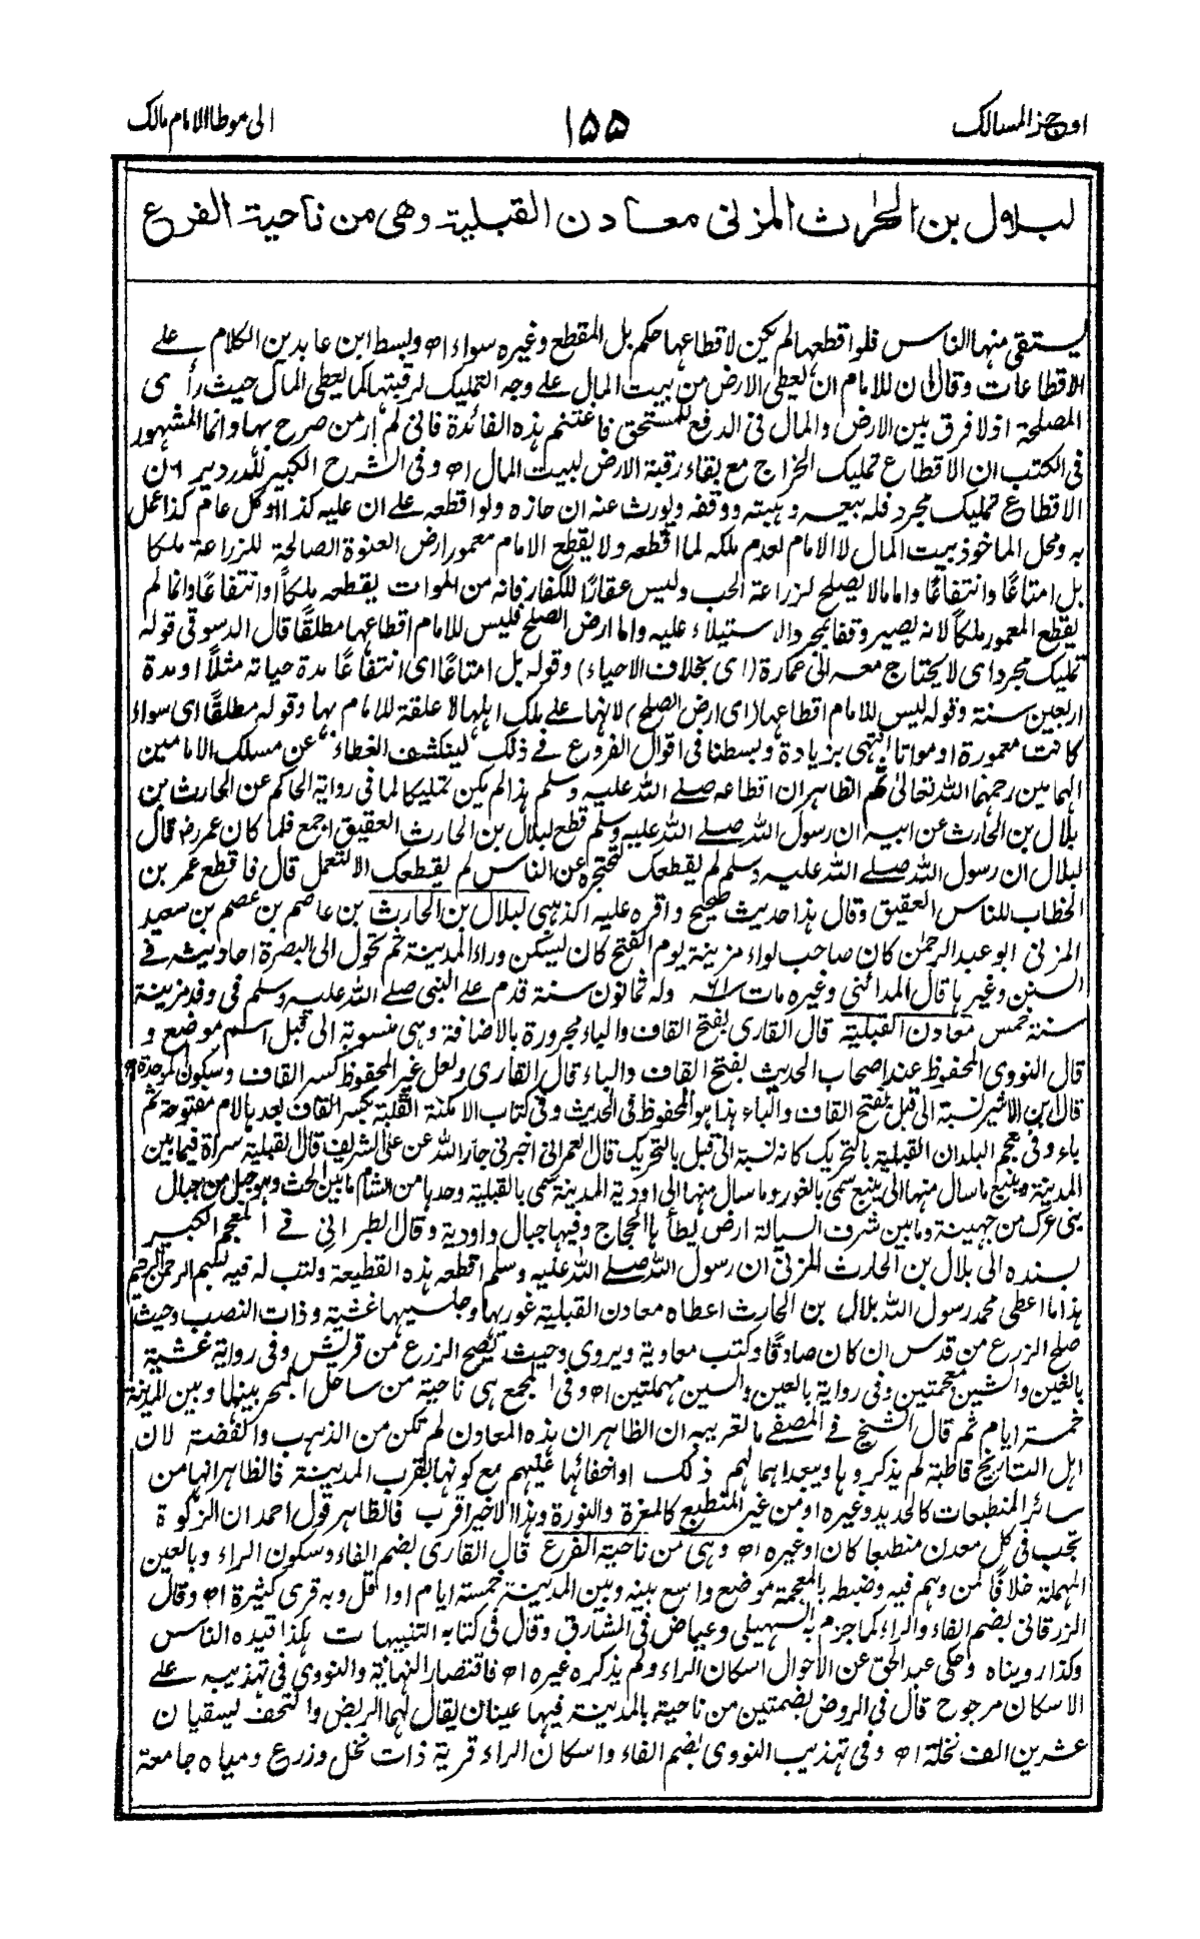 اوجز المسالك
١٥٥
الى موطا الامام مالك
لبلال بن الحٰرث المزنى معادن القبلية وهى من ناحية الفرع
يستقى منها الناس فلو اقطعها لم يكن لاقطاعها حكم بل المقطع وغيره سواء اه وبسط ابن عابدين الكلام على
الاقطاعات وقال ان للامام ان يعطى الارض من بيت المال على وجه التمليك لرقبتها كما يعطى المال حيث رأى
المصلحة اذ لا فرق بين الارض والمال فى الدفع للمستحق فاغتنم هذه الفائدة فانى لم ار من صرح بها وانما المشهور
فى الكتب ان الاقطاع تمليك الخراج مع بقاء رقبة الارض لبيت المال اه وفى الشرح الكبير للدردير ان
الاقطاع تمليك مجرد فله بيعه وهبته ووقفه ويورث عنه ان حازه ولو اقطعه على ان عليه كذا او كل عام كذا عمل
به ومحل الماخوذ بيت المال لا الامام لعدم ملكه لما اقطعه ولا يقطع الامام معمور ارض العنوة الصالحة للزراعة ملكا
بل امتاعًا وانتفاعًا واما مالا يصلح لزراعة الحب وليس عقارًا للكفار فانه من الموات يقطعه ملكاً او انتفاعًا وانما لم
يقطع المعمور ملكاً لانه يصير وقفا بمجرد الاستيلاء عليه واما ارض الصلح فليس للامام اقطاعها مطلقًا قال الدسوقى قوله
تمليك مجرد اى لا يحتاج معه الى عمارة (اى بخلاف الاحياء) وقوله بل امتاعًا اى انتفاعًا مدة حياته مثلًا او مدة
اربعين سنة وقوله ليس للامام اقطاعها (اى ارض الصلح) لانها على ملك اهلها لا علقة للامام بها وقوله مطلقًا اى سواء
كانت معمورة او مواتا انتهى بزيادة وبسطنا فى اقوال الفروع فى ذلك لينكشف الغطاء عن مسلك الامامين
الهمامين رحمهما الله تعالى ثم الظاهر ان اقطاعه صلى الله عليه وسلم هذا لم يكن تمليكا لما فى رواية الحاكم عن الحارث بن
بلال بن الحارث عن ابيه ان رسول الله صلى الله عليه وسلم قطع لبلال بن الحارث العقيق اجمع فلما كان عمر رضى قال
لبلال ان رسول الله صلى الله عليه وسلم لم يقطعك لتحتجره عن الناس لم يقطعك الا لتعمل قال فاقطع عمر بن
الخطاب للناس العقيق وقال هذا حديث صحيح واقره عليه الذهبى لبلال بن الحارث بن عاصم بن عصم بن سعيد
المزنى ابو عبد الرحمٰن كان صاحب لواء مزينة يوم الفتح كان يسكن وراء المدينة ثم تحول الى البصرة احاديثه فى
السنن وغيرها قال المدائنى وغيره مات وله ثمانون سنة قدم على النبى صلى الله عليه وسلم فى وفد مزينة
سنة خمس معادن القبلية قال القارى بفتح القاف والباء مجرورة بالاضافة وهى منسوبة الى قبل اسم موضع و
قال النووى المحفوظ عند اصحاب الحديث بفتح القاف والباء قال القارى ولعل غير المحفوظ كسر القاف وسكون الموحدة اه
قال ابن الاثير نسبة الى قبل بفتح القاف والباء هذا هو المحفوظ فى الحديث وفى كتاب الامكنة القلبة بكسر القاف بعدها لام مفتوحة ثم
باء وفى معجم البلدان القبلية بالتحريك كانه نسبة الى قبل بالتحريك قال العمرانى اخبرنى جار الله عن على الشريف قال القبلية سراة فيما بين
المدينة وينبع ما سال منها الى ينبع سمى بالغور وما سال منها الى اودية المدينة سمى بالقبلية وحدها من الشام ما بين الحث وهو جبل من جبال
بنى عرك من جهينة وما بين شرف السيالة ارض يطأها الحجاج وفيها جبال واودية وقال الطبرانى فى المعجم الكبير
بسنده الى بلال بن الحارث المزنى ان رسول الله صلى الله عليه وسلم اقطعه هذه القطيعة وكتب له فيه بسم الله الرحمن الرحيم
هذا ما اعطى محمد رسول الله بلال بن الحارث اعطاه معادن القبلية غوريها وجلسيها غشية وذات النصب وحيث
صلح الزرع من قدس ان كان صادقًا وكتب معاوية ويروى وحيث يصح الزرع من قريش وفى رواية غشية
بالغين والشين معجمتين وفى رواية بالعين والسين مهملتين اه وفى المجمع هى ناحية من ساحل البحر بينها وبين المدينة
خمسة ايام ثم قال الشيخ فى المصفى ما تعريبه ان الظاهر ان هذه المعادن لم تكن من الذهب والفضة لان
اهل التاريخ قاطبة لم يذكروها ويبعد اهمالهم ذلك او اخفائها عليهم مع كونها بقرب المدينة فالظاهر انها من
سائر المنطبعات كالحديد وغيره او من غير المنطبع كالمغرة والنورة وهذا الاخير اقرب فالظاهر قول احمد ان الزكوة
تجب فى كل معدن منطبعا كان او غيره اه وهى من ناحية الفرع قال القارى بضم الفاء وسكون الراء وبالعين
المهملة خلافًا لمن وهم فيه وضبطه بالمعجمة موضع واسع بينه وبين المدينة خمسة ايام او اقل وبه قرى كثيرة اه وقال
الزرقانى بضم الفاء والراء كما جزم به السهيلى وعياض فى المشارق وقال فى كتابه التنبيهات هكذا قيده الناس
وكذا رويناه وحكى عبد الحق عن الاحوال اسكان الراء ولم يذكره غيره اه فاقتصار النهاية والنووى فى تهذيبه على
الاسكان مرجوح قال فى الروض بضمتين من ناحية بالمدينة فيها عينان يقال لهما الربض والتحف يسقيان
عشرين الف نخلة اه وفى تهذيب النووى بضم الفاء واسكان الراء قرية ذات نخل وزرع ومياه جامعة